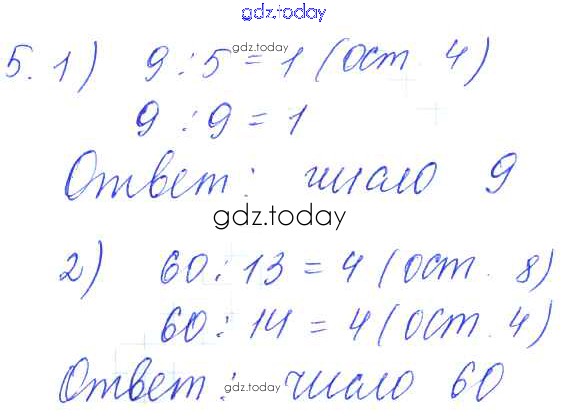 gdz.today
5. 1) 9 : 5 = 1 (ост. 4)
gdz.today
9 : 9 = 1
Ответ: число 9
gdz.today
2) 60 : 13 = 4 (ост. 8)
60 : 14 = 4 (ост. 4)
Ответ: число 60
gdz.today